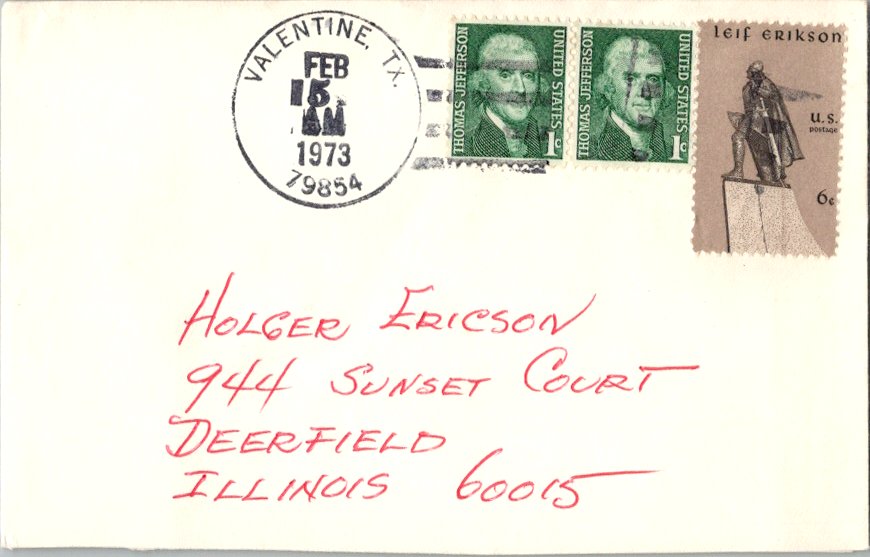 VALENTINE, TX.
FEB
15
AM
1973
79854
THOMAS JEFFERSON
UNITED STATES
1c
THOMAS JEFFERSON
UNITED STATES
1c
LEIF ERIKSON
U.S.
postage
6c
HOLGER ERICSON
944 SUNSET COURT
DEERFIELD
ILLINOIS 60015